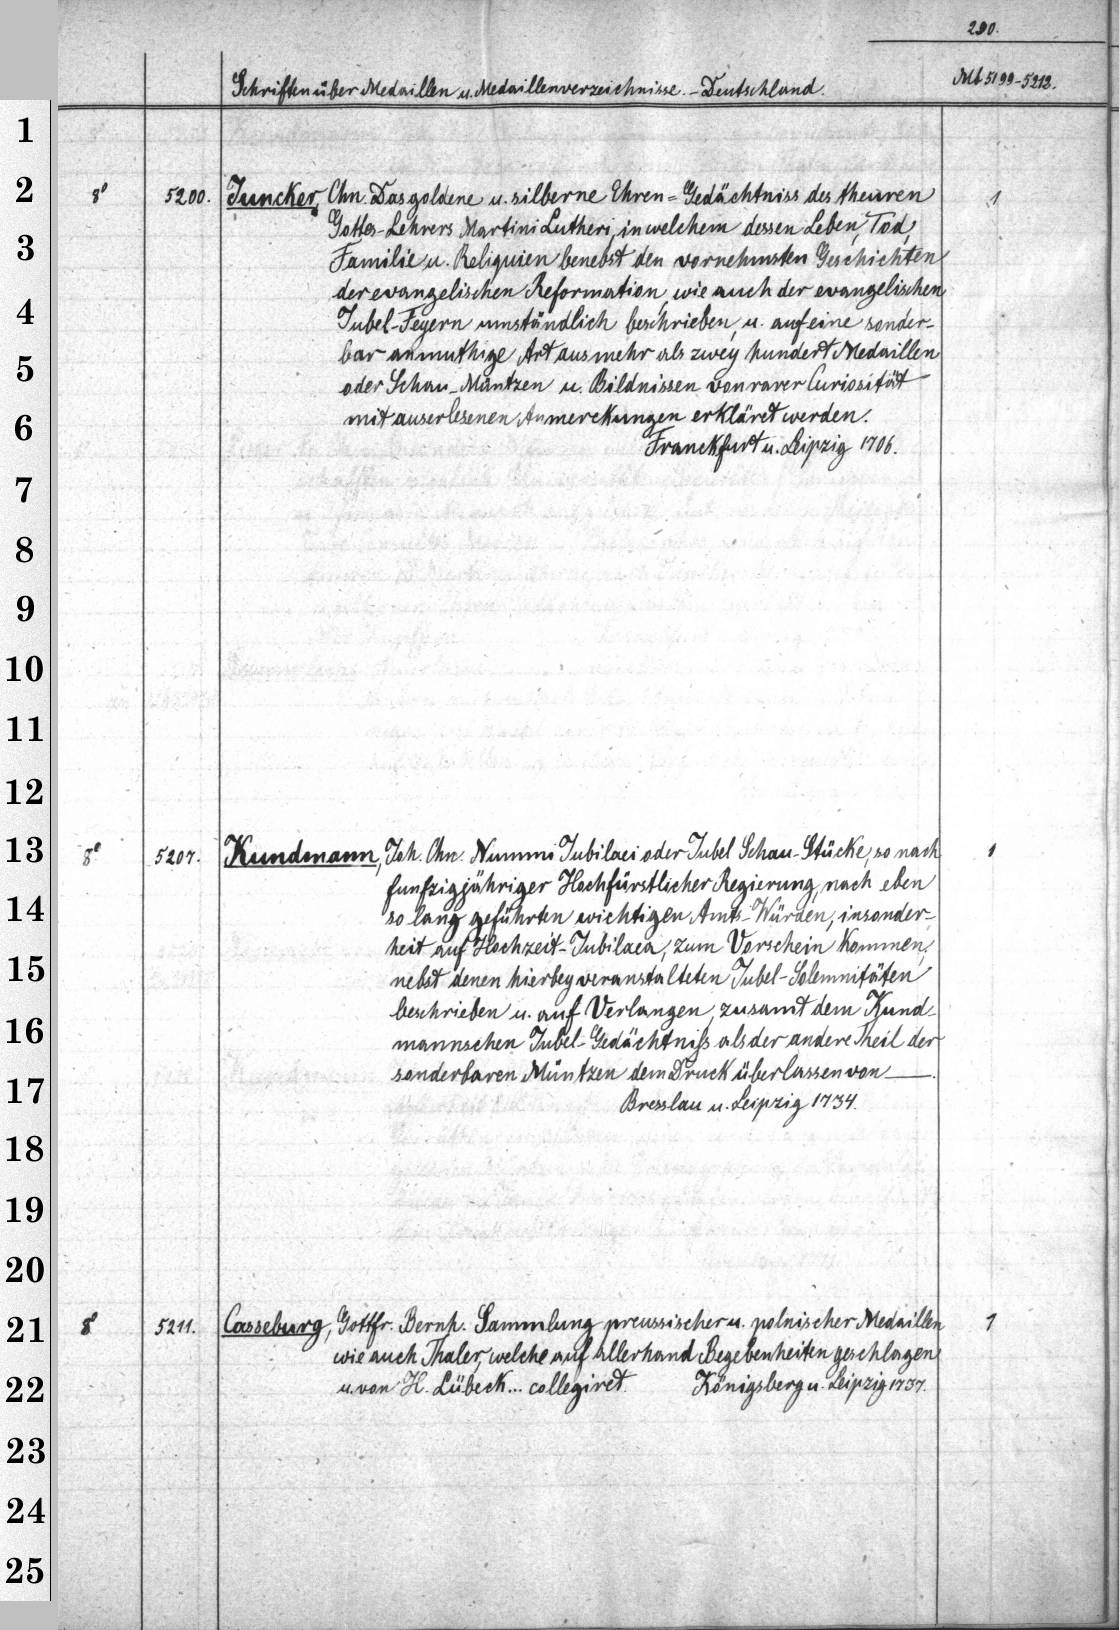 290.
Schriften über Medaillen u. Medaillenverzeichnisse. - Deutschland.
Mb 5199-5212.
1
2
8° 5200. Juncker, Chn. Das goldene u. silberne Ehren=Gedächtniss des theuren 1
Gottes-Lehrers Martini Lutheri, in welchem dessen Leben, Tod,
3
Familie u. Reliquien benebst den vornehmsten Geschichten
der evangelischen Reformation, wie auch der evangelischen
4
Jubel-Feyern umständlich beschrieben, u. auf eine sonder-
bar anmuthige Art aus mehr als zwey hundert Medaillen
5
oder Schau-Müntzen u. Bildnissen von rarer Curiosität
mit auserlesenen Anmerckungen erkläret werden.
6
Franckfurt u. Leipzig 1706.
7
8
9
10
11
12
13
8° 5207. Kundmann, Joh. Chn. Nummi Jubilaei oder Jubel Schau-Stücke, so nach 1
funfzigjähriger Hochfürstlicher Regierung, nach eben
14
so lang geführten wichtigen Amts-Würden, insonder-
heit auf Hochzeit-Jubilaea, zum Vorschein kommen,
15
nebst denen hierbey veranstalteten Jubel-Solemnitäten
beschrieben u. auf Verlangen, zusamt dem Kund-
16
mannschen Jubel-Gedächtniß als der andere Theil der
sonderbaren Müntzen dem Druck überlassen von —.
17
Bresslau u. Leipzig 1734.
18
19
20
21
8° 5211. Casseburg, Gottfr. Bernh. Sammlung preussischer u. polnischer Medaillen 1
wie auch Thaler, welche auf allerhand Begebenheiten geschlagen
22
u. von H. Lübeck... collegiret. Königsberg u. Leipzig 1737.
23
24
25